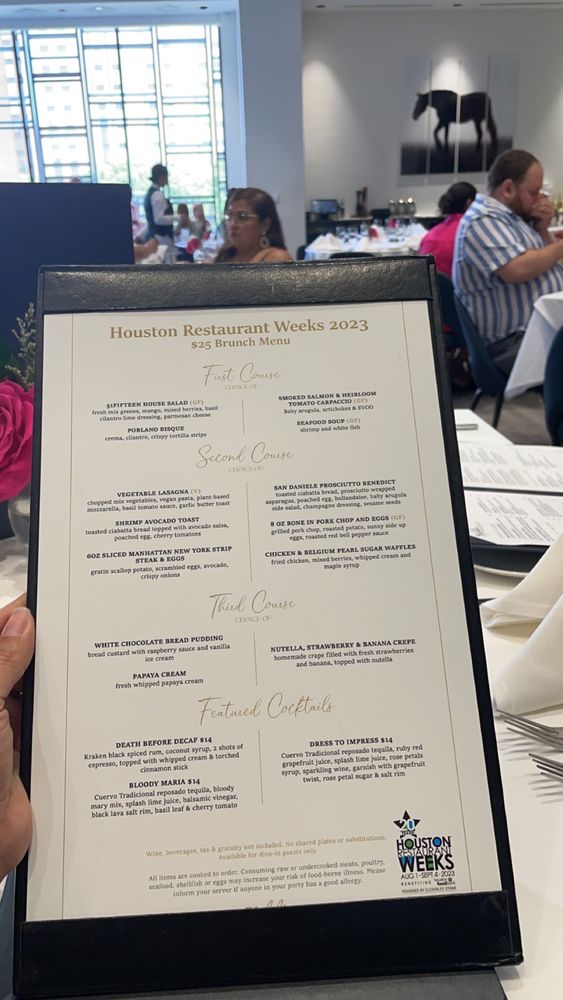 Houston Restaurant Weeks 2023
$25 Brunch Menu
First Course
CHOICE OF:
51FIFTEEN HOUSE SALAD (GF)
fresh mix greens, mango, mixed berries, basil
cilantro lime dressing, parmesan crisp
POBLANO BISQUE
crema, cilantro, crispy tortilla strips
SMOKED SALMON & HEIRLOOM
TOMATO CARPACCIO (GF)
Baby arugula, artichokes & EVOO
SEAFOOD SOUP (GF)
shrimp and white fish
Second Course
CHOICE OF:
VEGETABLE LASAGNA (V)
chopped mix vegetables, vegan pasta, plant-based
mozzarella, basil tomato sauce, garlic butter toast
SHRIMP AVOCADO TOAST
toasted ciabatta bread topped with avocado salsa,
poached egg, cherry tomatoes
6OZ SLICED MANHATTAN NEW YORK STRIP
STEAK & EGGS
gratin scallop potato, scrambled eggs, avocado,
crispy onions
SAN DANIELE PROSCIUTTO BENEDICT
toasted ciabatta bread, prosciutto wrapped
asparagus, poached egg, hollandaise, baby arugula
side salad, champagne dressing, sesame seeds
8 OZ BONE IN PORK CHOP AND EGGS (GF)
grilled pork chop, roasted potato, sunny side up
eggs, roasted red bell pepper sauce
CHICKEN & BELGIUM PEARL SUGAR WAFFLES
fried chicken, mixed berries, whipped cream and
maple syrup
Third Course
CHOICE OF:
WHITE CHOCOLATE BREAD PUDDING
bread custard with raspberry sauce and vanilla
ice cream
PAPAYA CREAM
fresh whipped papaya cream
NUTELLA, STRAWBERRY & BANANA CREPE
homemade crepe filled with fresh strawberries
and banana, topped with nutella
Featured Cocktails
DEATH BEFORE DECAF $14
Kraken black spiced rum, coconut syrup, 2 shots of
espresso, topped with whipped cream & torched
cinnamon stick
BLOODY MARIA $14
Cuervo Tradicional reposado tequila, bloody
mary mix, splash lime juice, balsamic vinegar,
black lava salt rim, basil leaf & cherry tomato
DRESS TO IMPRESS $14
Cuervo Tradicional reposado tequila, ruby red
grapefruit juice, splash lime juice, rose petals
syrup, sparkling wine, garnish with grapefruit
twist, rose petal sugar & salt rim
Wine, beverages, tax & gratuity not included. No shared plates or substitutions.
Available for dine-in guests only
All items are cooked to order. Consuming raw or undercooked meats, poultry,
seafood, shellfish or eggs may increase your risk of food-borne illness. Please
inform your server if anyone in your party has a good allergy.
20
HOUSTON
RESTAURANT
WEEKS
AUG 1 - SEPT 4 · 2023
BENEFITING houston foodbank
FOUNDED BY CLEVERLEY STONE